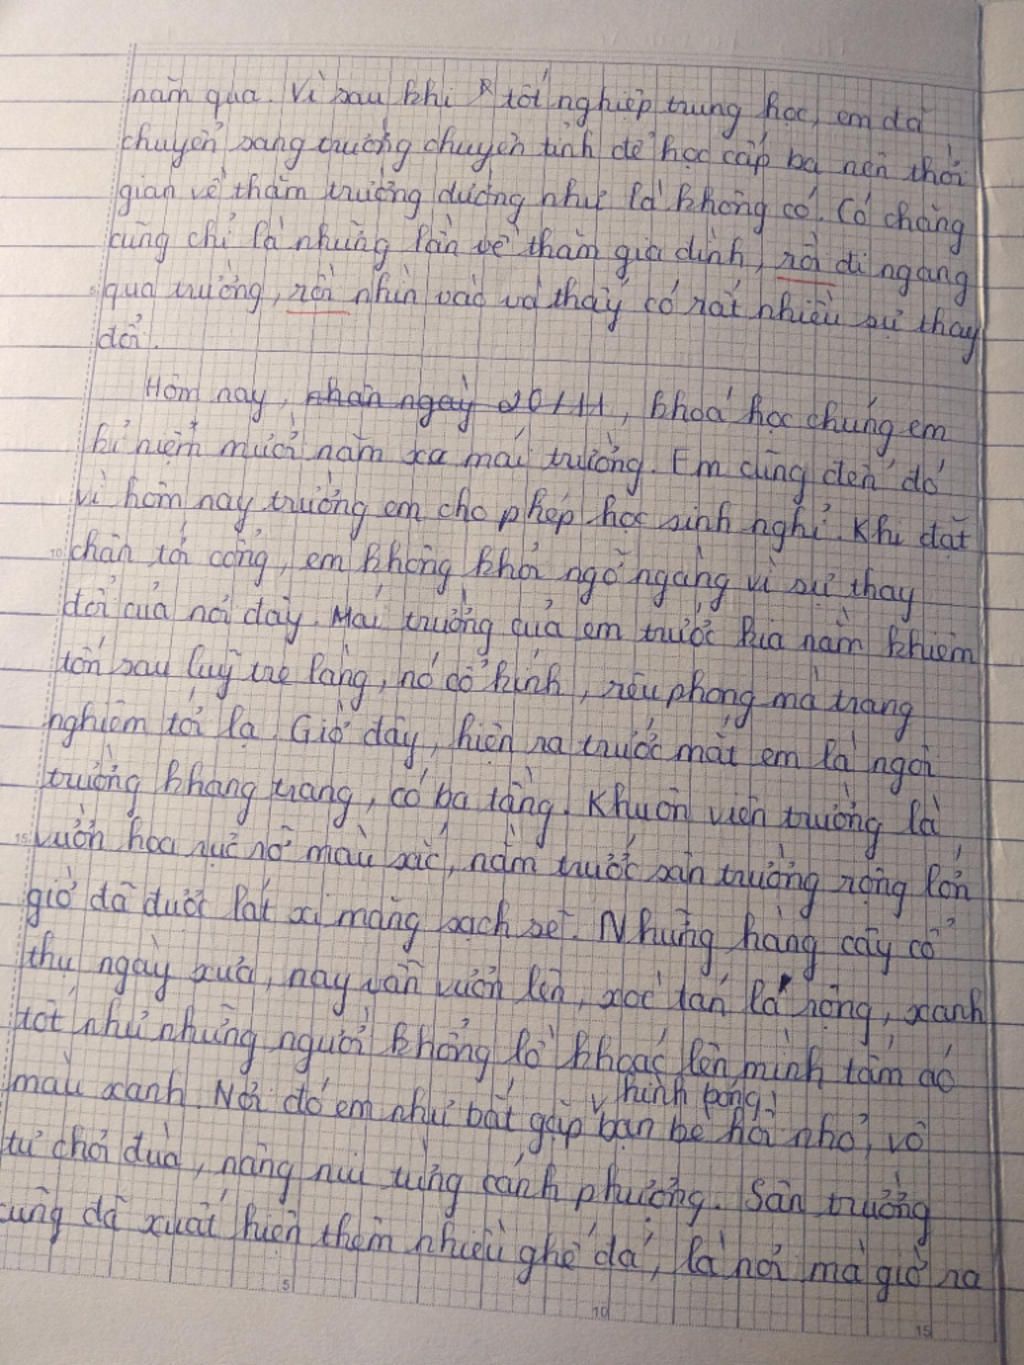 năm qua. Vì sau khi tốt nghiệp trung học, em đã
chuyển sang trường chuyên tỉnh để học cấp ba nên thời
gian về thăm trường dường như là không có. Có chăng
cũng chỉ là những lần về thăm gia đình, rồi đi ngang
5 qua trường, rồi nhìn vào và thấy có rất nhiều sự thay
đổi.
Hôm nay, nhân ngày 20/11, khoá học chúng em
kỉ niệm mười năm xa mái trường. Em cũng đến đó
vì hôm nay trường em cho phép học sinh nghỉ. Khi đặt
10 chân tới cổng, em không khỏi ngỡ ngàng vì sự thay
đổi của nơi đây. Mái trường của em trước kia nằm khiêm
tốn sau luỹ tre làng, nó cổ kính, rêu phong mà trang
nghiêm tới lạ. Giờ đây, hiện ra trước mắt em là ngôi
trường khang trang, có ba tầng. Khuôn viên trường là
15 vườn hoa rực rỡ màu sắc, nằm trước sân trường rộng lớn
giờ đã được lát xi măng sạch sẽ. Những hàng cây cổ
thụ ngày xưa, nay vẫn vươn lên, xoè tán lá rộng, xanh
tốt như những người khổng lồ khoác lên mình tấm áo
màu xanh. Nơi đó em như bắt gặp hình bóng bạn bè hồi nhỏ, vô
tư chơi đùa, nâng niu từng cánh phượng. Sân trường
cũng đã xuất hiện thêm nhiều ghế đá, là nơi mà giờ ra
5 10 15